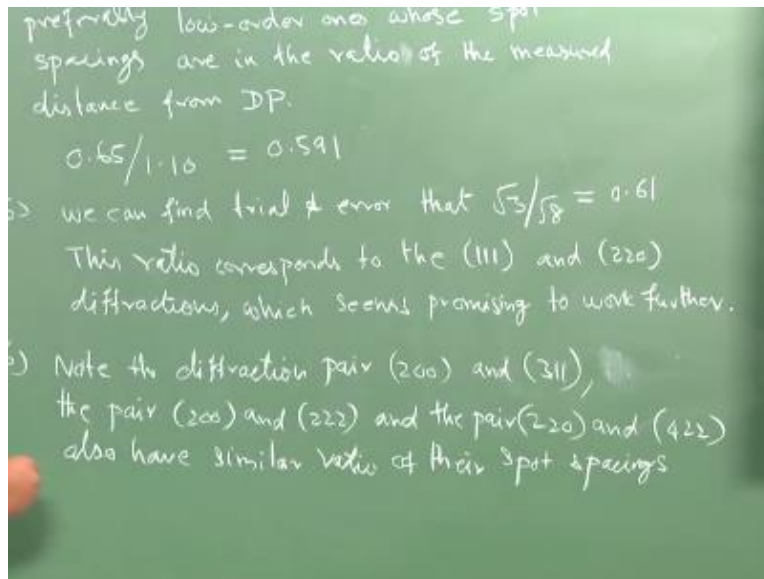 preferably low-order ones whose spot
spacings are in the ratio of the measured
distance from DP.
0.65/1.10 = 0.591
5) we can find trial & error that √3/√8 = 0.61
This ratio corresponds to the (111) and (220)
diffractions, which seems promising to work further.
6) Note the diffraction pair (200) and (311),
the pair (200) and (222) and the pair (220) and (422)
also have similar ratio of their spot spacings